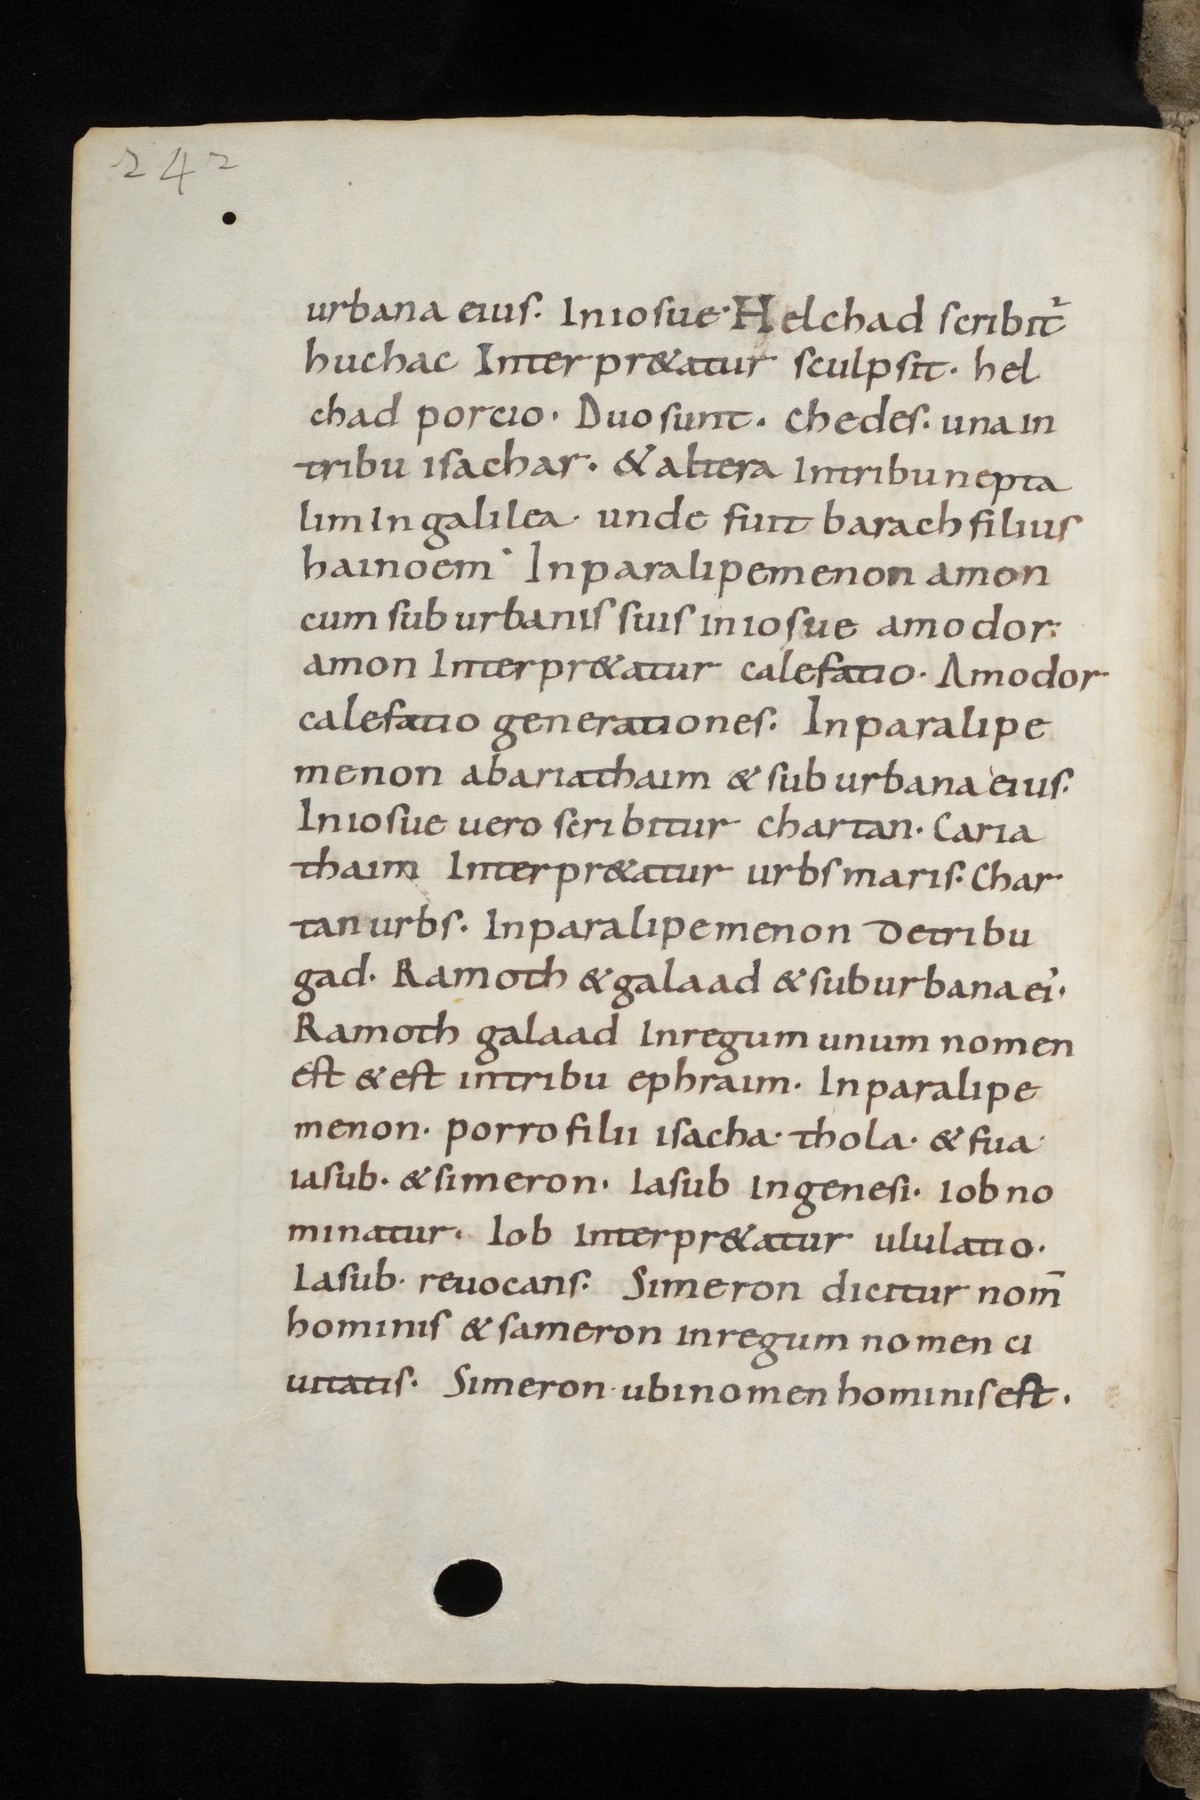 242
urbana eius. In iosue. Helchad scribit̃
huchac Interpr&atur sculpsit. hel
chad porcio. Duo sunt. chedes. una in
tribu isachar. & altera In tribu nepta
lim In galilea. unde fuit barach filius
hainoem. In paralipemenon amon
cum suburbanis suis in iosue amodor.
amon Interpr&atur calefatio. Amodor
calefatio generationes. In paralipe
menon abariathaim & suburbana eius.
In iosue uero scribitur chartan. Caria
thaim Interpr&atur urbs maris. Char
tan urbs. In paralipemenon De tribu
gad. Ramoth & galaad & suburbana ei'.
Ramoth galaad In regum unum nomen
est & est in tribu ephraim. In paralipe
menon. porro filii isacha. thola. & fua.
iasub. & simeron. Iasub In genesi. Iob no
minatur. Iob Interpr&atur ululatio.
Iasub. reuocans. Simeron dicitur nom̅
hominis & sameron in regum nomen ci
uitatis. Simeron ubi nomen hominis est.